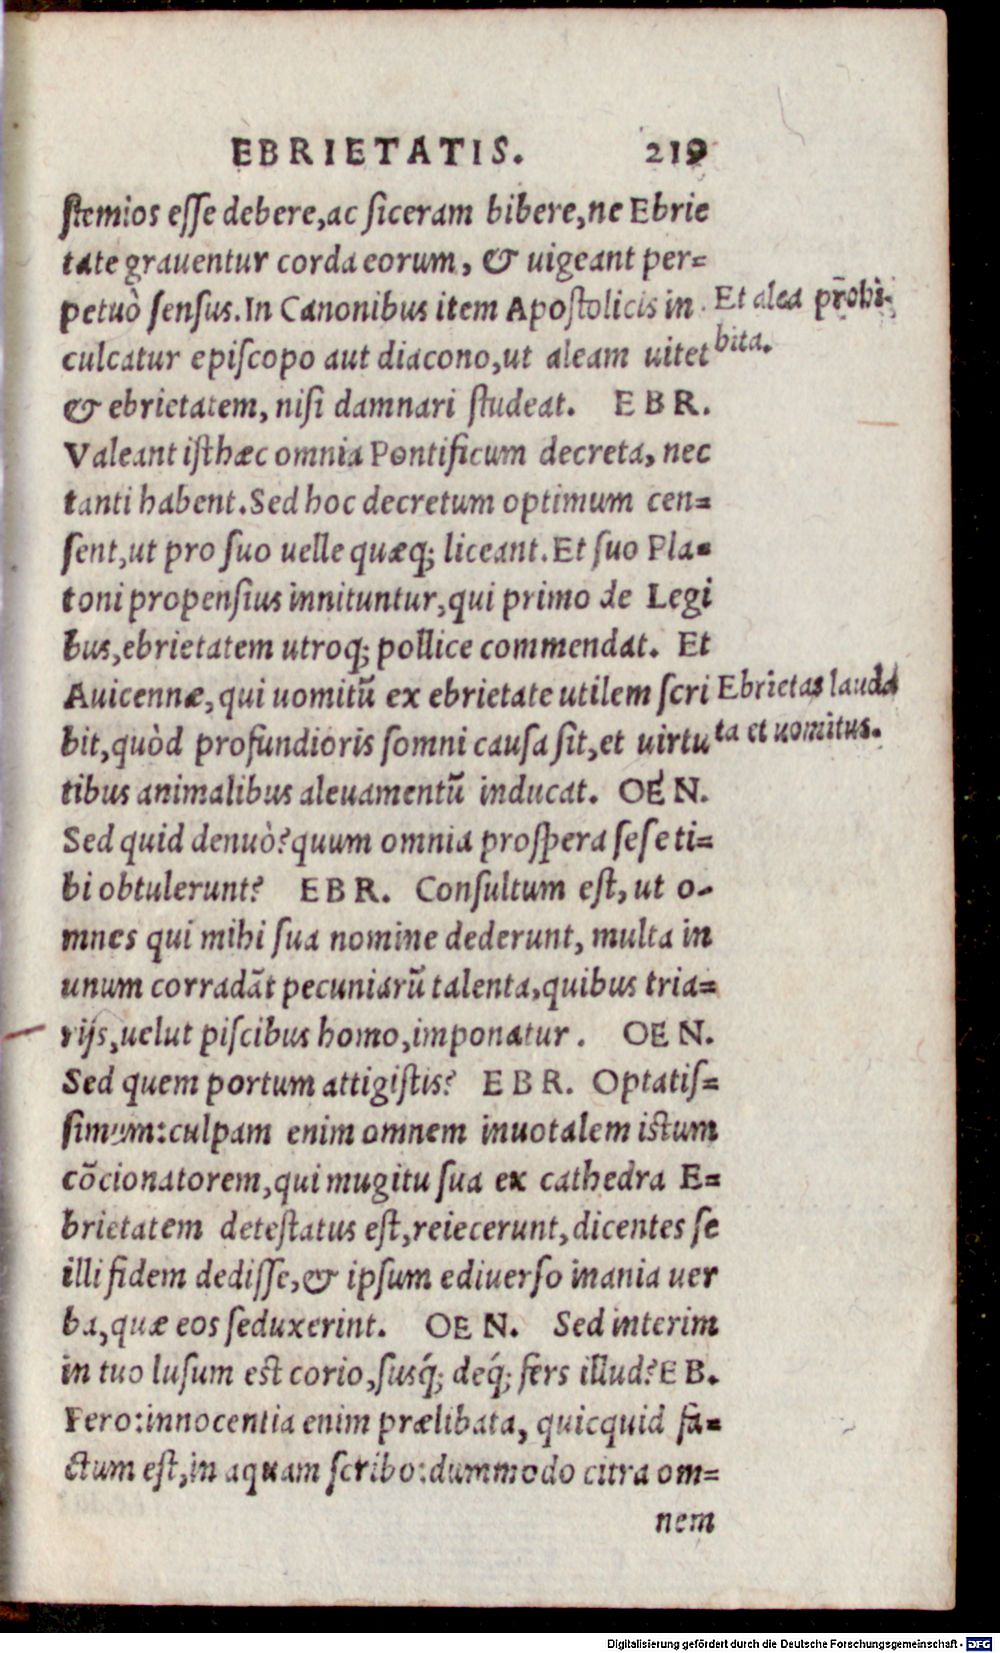 EBRIETATIS. 219
stemios esse debere, ac siceram bibere, ne Ebrie
tate grauentur corda eorum, & uigeant per=
petuò sensus. In Canonibus item Apostolicis in
culcatur episcopo aut diacono, ut aleam uitet
& ebrietatem, nisi damnari studeat. EBR.
Valeant isthæc omnia Pontificum decreta, nec
tanti habent. Sed hoc decretum optimum cen=
sent, ut pro suo uelle quæq; liceant. Et suo Pla=
toni propensius innituntur, qui primo de Legi
bus, ebrietatem utroq; pollice commendat. Et
Auicennæ, qui uomitū ex ebrietate utilem scri
bit, quòd profundioris somni causa sit, et uirtu
tibus animalibus aleuamentū inducat. OEN.
Sed quid denuò? quum omnia prospera sese ti=
bi obtulerunt? EBR. Consultum est, ut o-
mnes qui mihi sua nomine dederunt, multa in
unum corradāt pecuniarū talenta, quibus tria=
rijs, uelut piscibus homo, imponatur. OEN.
Sed quem portum attigistis? EBR. Optatis=
simum: culpam enim omnem inuotalem istum
cōcionatorem, qui mugitu sua ex cathedra E=
brietatem detestatus est, reiecerunt, dicentes se
illi fidem dedisse, & ipsum ediuerso inania uer
ba, quæ eos seduxerint. OEN. Sed interim
in tuo lusum est corio, susq́; deq́; fers illud? EB.
Fero: innocentia enim prælibata, quicquid fa=
ctum est, in aquam scribo: dummodo citra om=
nem
Et alea p̄rohi-
bita.
Ebrietas lauda
ta et uomitus.
Digitalisierung gefördert durch die Deutsche Forschungsgemeinschaft - DFG